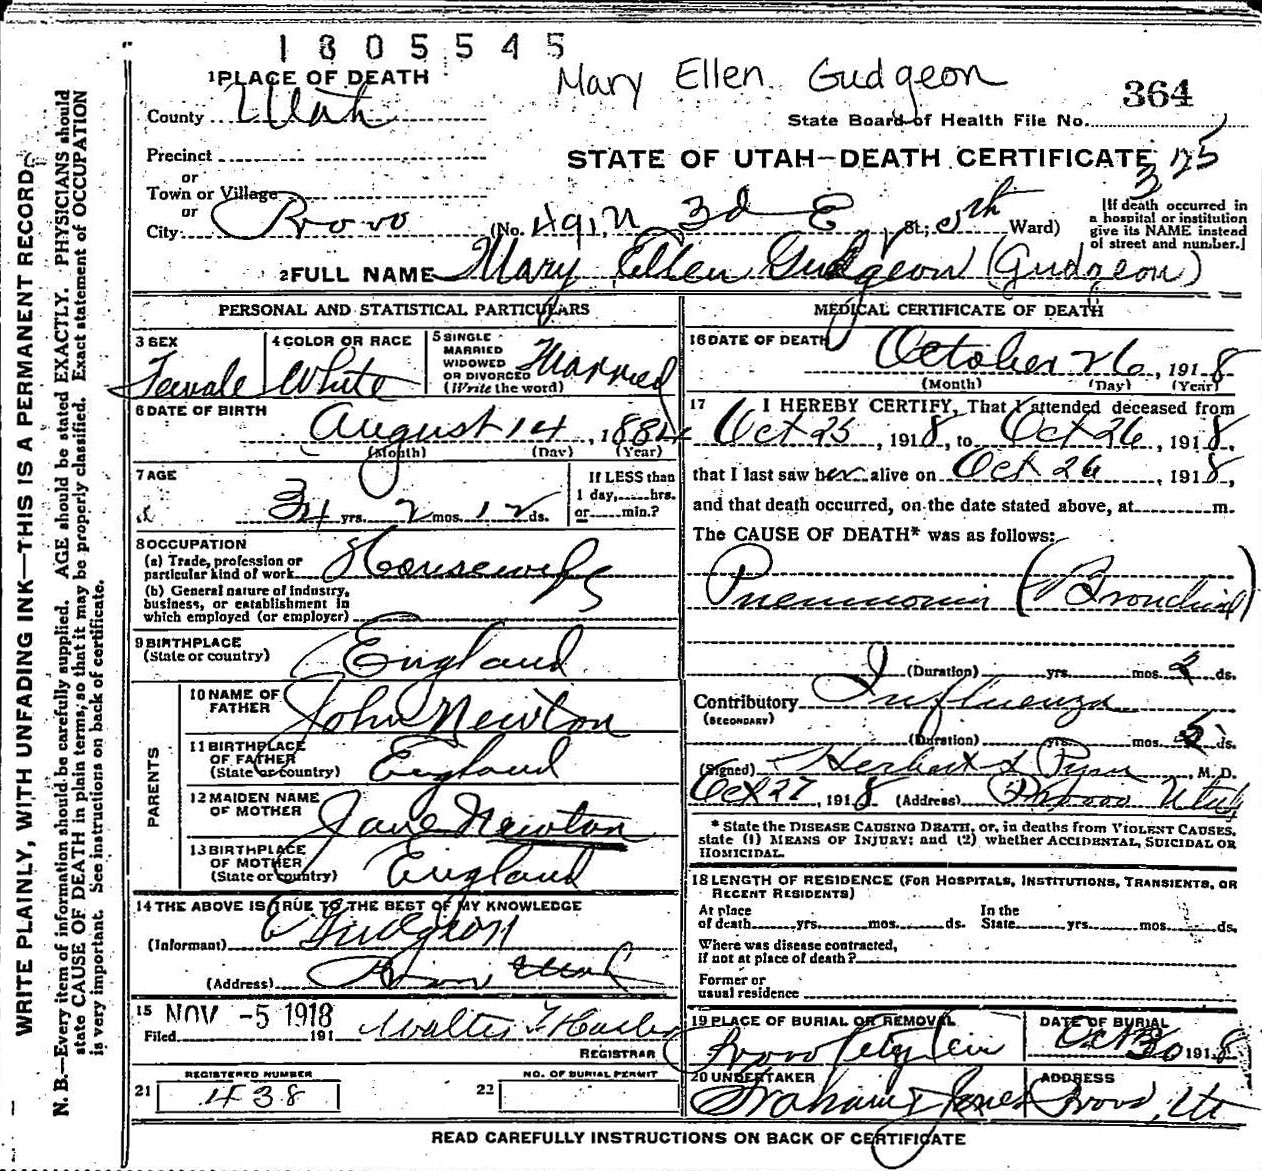 1805545
1 PLACE OF DEATH
Mary Ellen Gudgeon
364
County Utah
State Board of Health File No.
Precinct
STATE OF UTAH—DEATH CERTIFICATE
325
or
Town or Village
or
City Provo (No. 491 N 3d E St.; 5th Ward)
[If death occurred in
a hospital or institution
give its NAME instead
of street and number.]
2 FULL NAME Mary Ellen Gudgeon (Gudgeon)
PERSONAL AND STATISTICAL PARTICULARS
3 SEX
Female
4 COLOR OR RACE
White
5 SINGLE
MARRIED
WIDOWED
OR DIVORCED
(Write the word)
Married
6 DATE OF BIRTH
August 14, 1884
(Month) (Day) (Year)
7 AGE
34 yrs. 2 mos. 12 ds.
If LESS than
1 day, hrs.
or min.?
8 OCCUPATION
(a) Trade, profession or
particular kind of work Housewife
(b) General nature of industry,
business, or establishment in
which employed (or employer)
9 BIRTHPLACE
(State or country)
England
PARENTS
10 NAME OF
FATHER
John Newton
11 BIRTHPLACE
OF FATHER
(State or country)
England
12 MAIDEN NAME
OF MOTHER
Jane Newton
13 BIRTHPLACE
OF MOTHER
(State or country)
England
14 THE ABOVE IS TRUE TO THE BEST OF MY KNOWLEDGE
(Informant) Gudgeon
(Address) Utah
15 NOV -5 1918
Filed 191 Walter T
REGISTRAR
REGISTERED NUMBER
21 438
NO. OF BURIAL PERMIT
22
MEDICAL CERTIFICATE OF DEATH
16 DATE OF DEATH
October 26, 1918
(Month) (Day) (Year)
17 I HEREBY CERTIFY, That I attended deceased from
Oct 25, 1918, to Oct 26, 1918,
that I last saw her alive on Oct 26, 1918,
and that death occurred, on the date stated above, at m.
The CAUSE OF DEATH* was as follows:
Pneumonia (Bronchial)
(Duration) yrs. mos. 2 ds.
Contributory Influenza
(SECONDARY)
(Duration) yrs. mos. 5 ds.
(Signed) Herbert S Pyne, M. D.
Oct 27, 1918 (Address) Provo Utah
* State the DISEASE CAUSING DEATH, or, in deaths from VIOLENT CAUSES,
state (1) MEANS OF INJURY; and (2) whether ACCIDENTAL, SUICIDAL OR
HOMICIDAL.
18 LENGTH OF RESIDENCE (FOR HOSPITALS, INSTITUTIONS, TRANSIENTS, OR
RECENT RESIDENTS)
At place
of death yrs. mos. ds.
In the
State yrs. mos. ds.
Where was disease contracted,
if not at place of death?
Former or
usual residence
19 PLACE OF BURIAL OR REMOVAL
Provo
DATE OF BURIAL
Oct 30 1918
20 UNDERTAKER
Graham & Jones
ADDRESS
Provo, Ut
READ CAREFULLY INSTRUCTIONS ON BACK OF CERTIFICATE
WRITE PLAINLY, WITH UNFADING INK—THIS IS A PERMANENT RECORD
N. B.—Every item of information should be carefully supplied. AGE should be stated EXACTLY. PHYSICIANS should
state CAUSE OF DEATH in plain terms, so that it may be properly classified. Exact statement of OCCUPATION
is very important. See instructions on back of certificate.